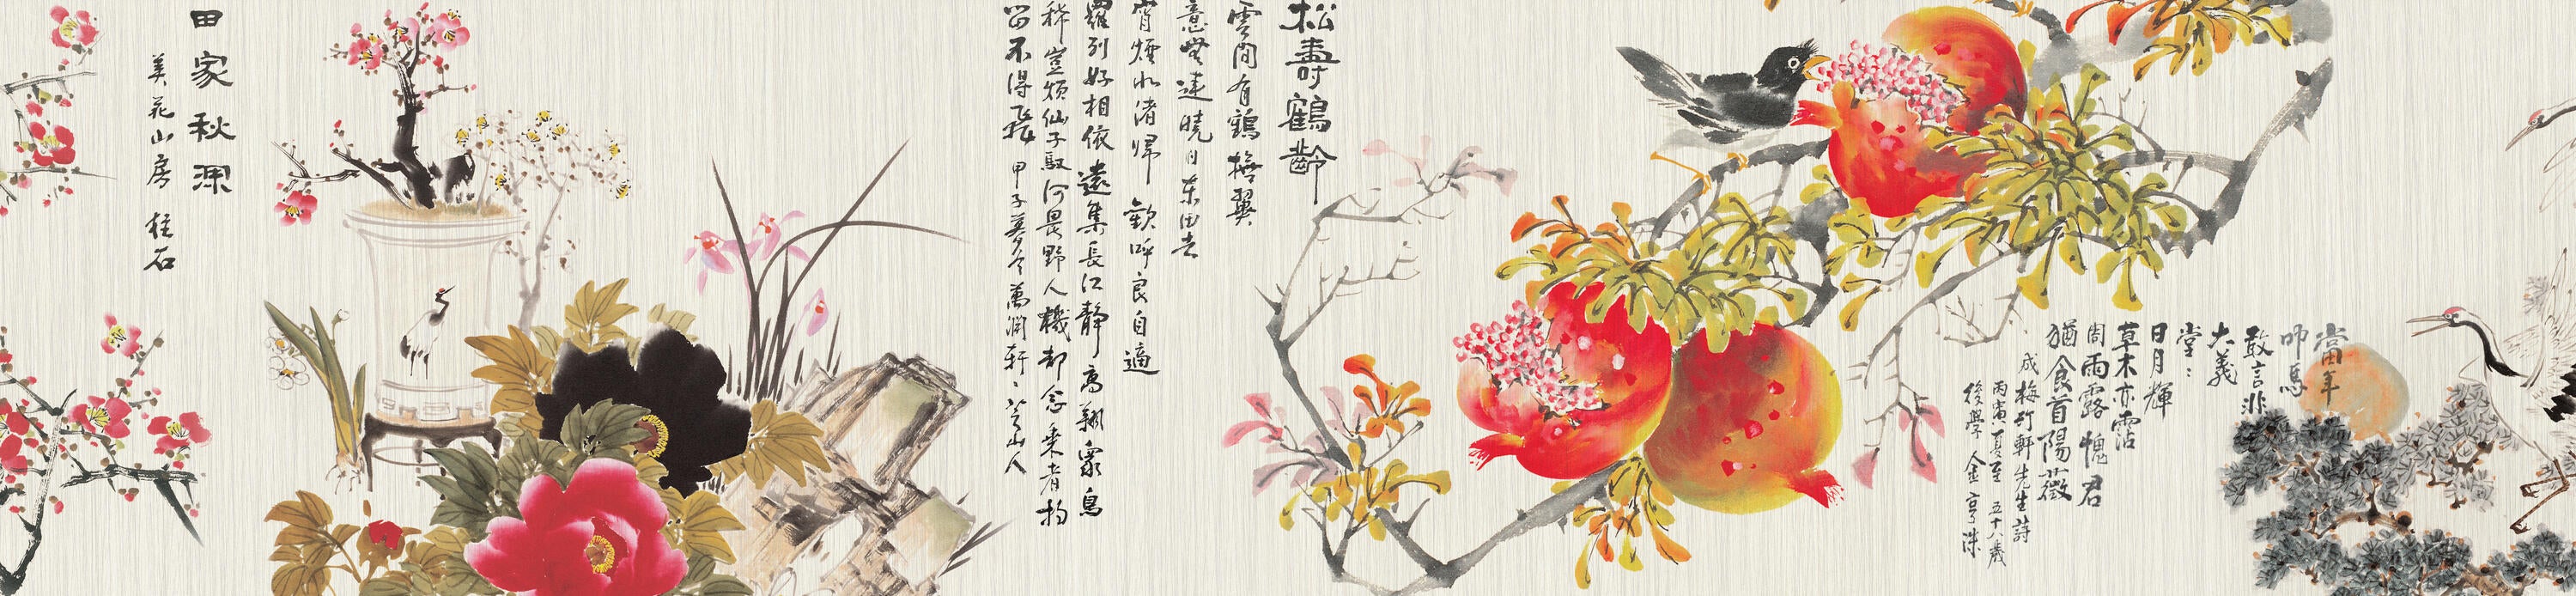 當年
叩馬
敢言非
大義
堂〻
日月輝
草木亦霑
周雨露愧君
猶食首陽薇
成梅竹軒先生詩
丙寅夏至 五十八歲
後學 人金
松壽鶴齡
雲間有鶴撫翼
意無違曉日東田去
宵煙水渚歸歡呼良自適
羅列好相依遠集長江靜高翔衆鳥
稀豈煩仙子馭何畏野人機却念乘者拘
留不得飛 甲子 萬 軒 山人
田家秋深
美花山房 桂石